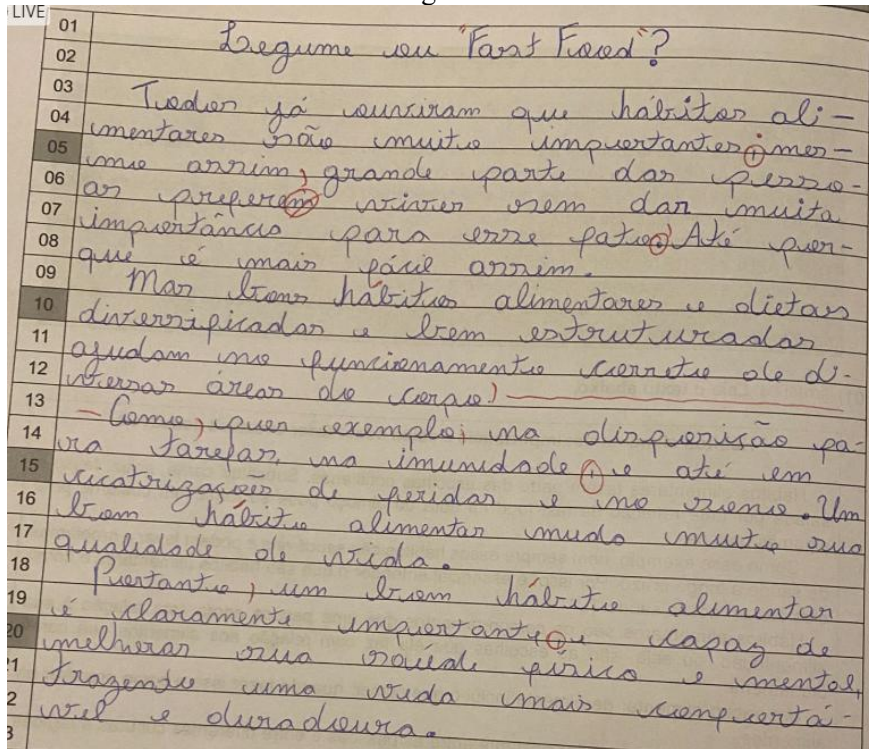 LIVE
01 Legume ou "Fast Food"?
02
03 Todos já ouviram que hábitos ali-
04 mentares são muito importantes, mes-
05 mo assim, grande parte das pesso-
06 as preferem viver sem dar muita
07 importância para esse fato. Até por-
08 que é mais fácil assim.
09 Mas bons hábitos alimentares e dietas
10 diversificadas e bem estruturadas
11 ajudam no funcionamento correto de di-
12 versas áreas do corpo)
13 Como, por exemplo, na disposição pa-
14 ra tarefas, na imunidade, e até em
15 cicatrizações de feridas e no sono. Um
16 bom hábito alimentar muda muito sua
17 qualidade de vida.
18 Portanto, um bom hábito alimentar
19 é claramente importante e capaz de
20 melhorar sua saúde física e mental,
21 trazendo uma vida mais conportá-
2 vel e duradoura.
3